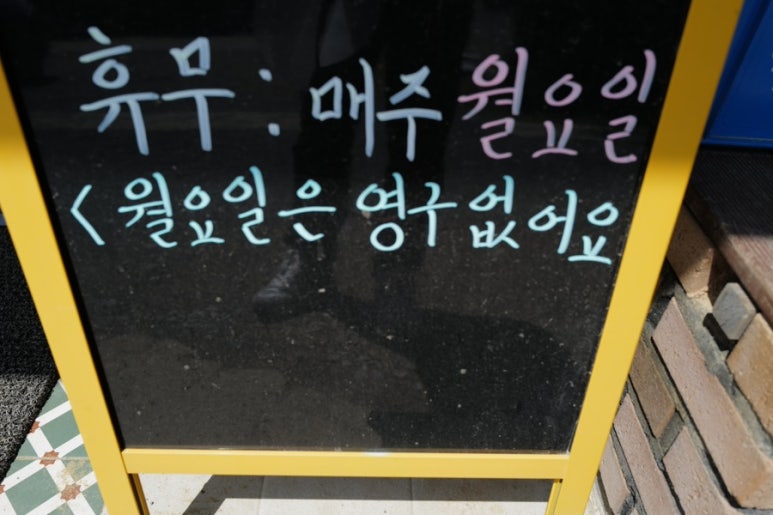 휴무: 매주 월요일
<월요일은 영구없어요